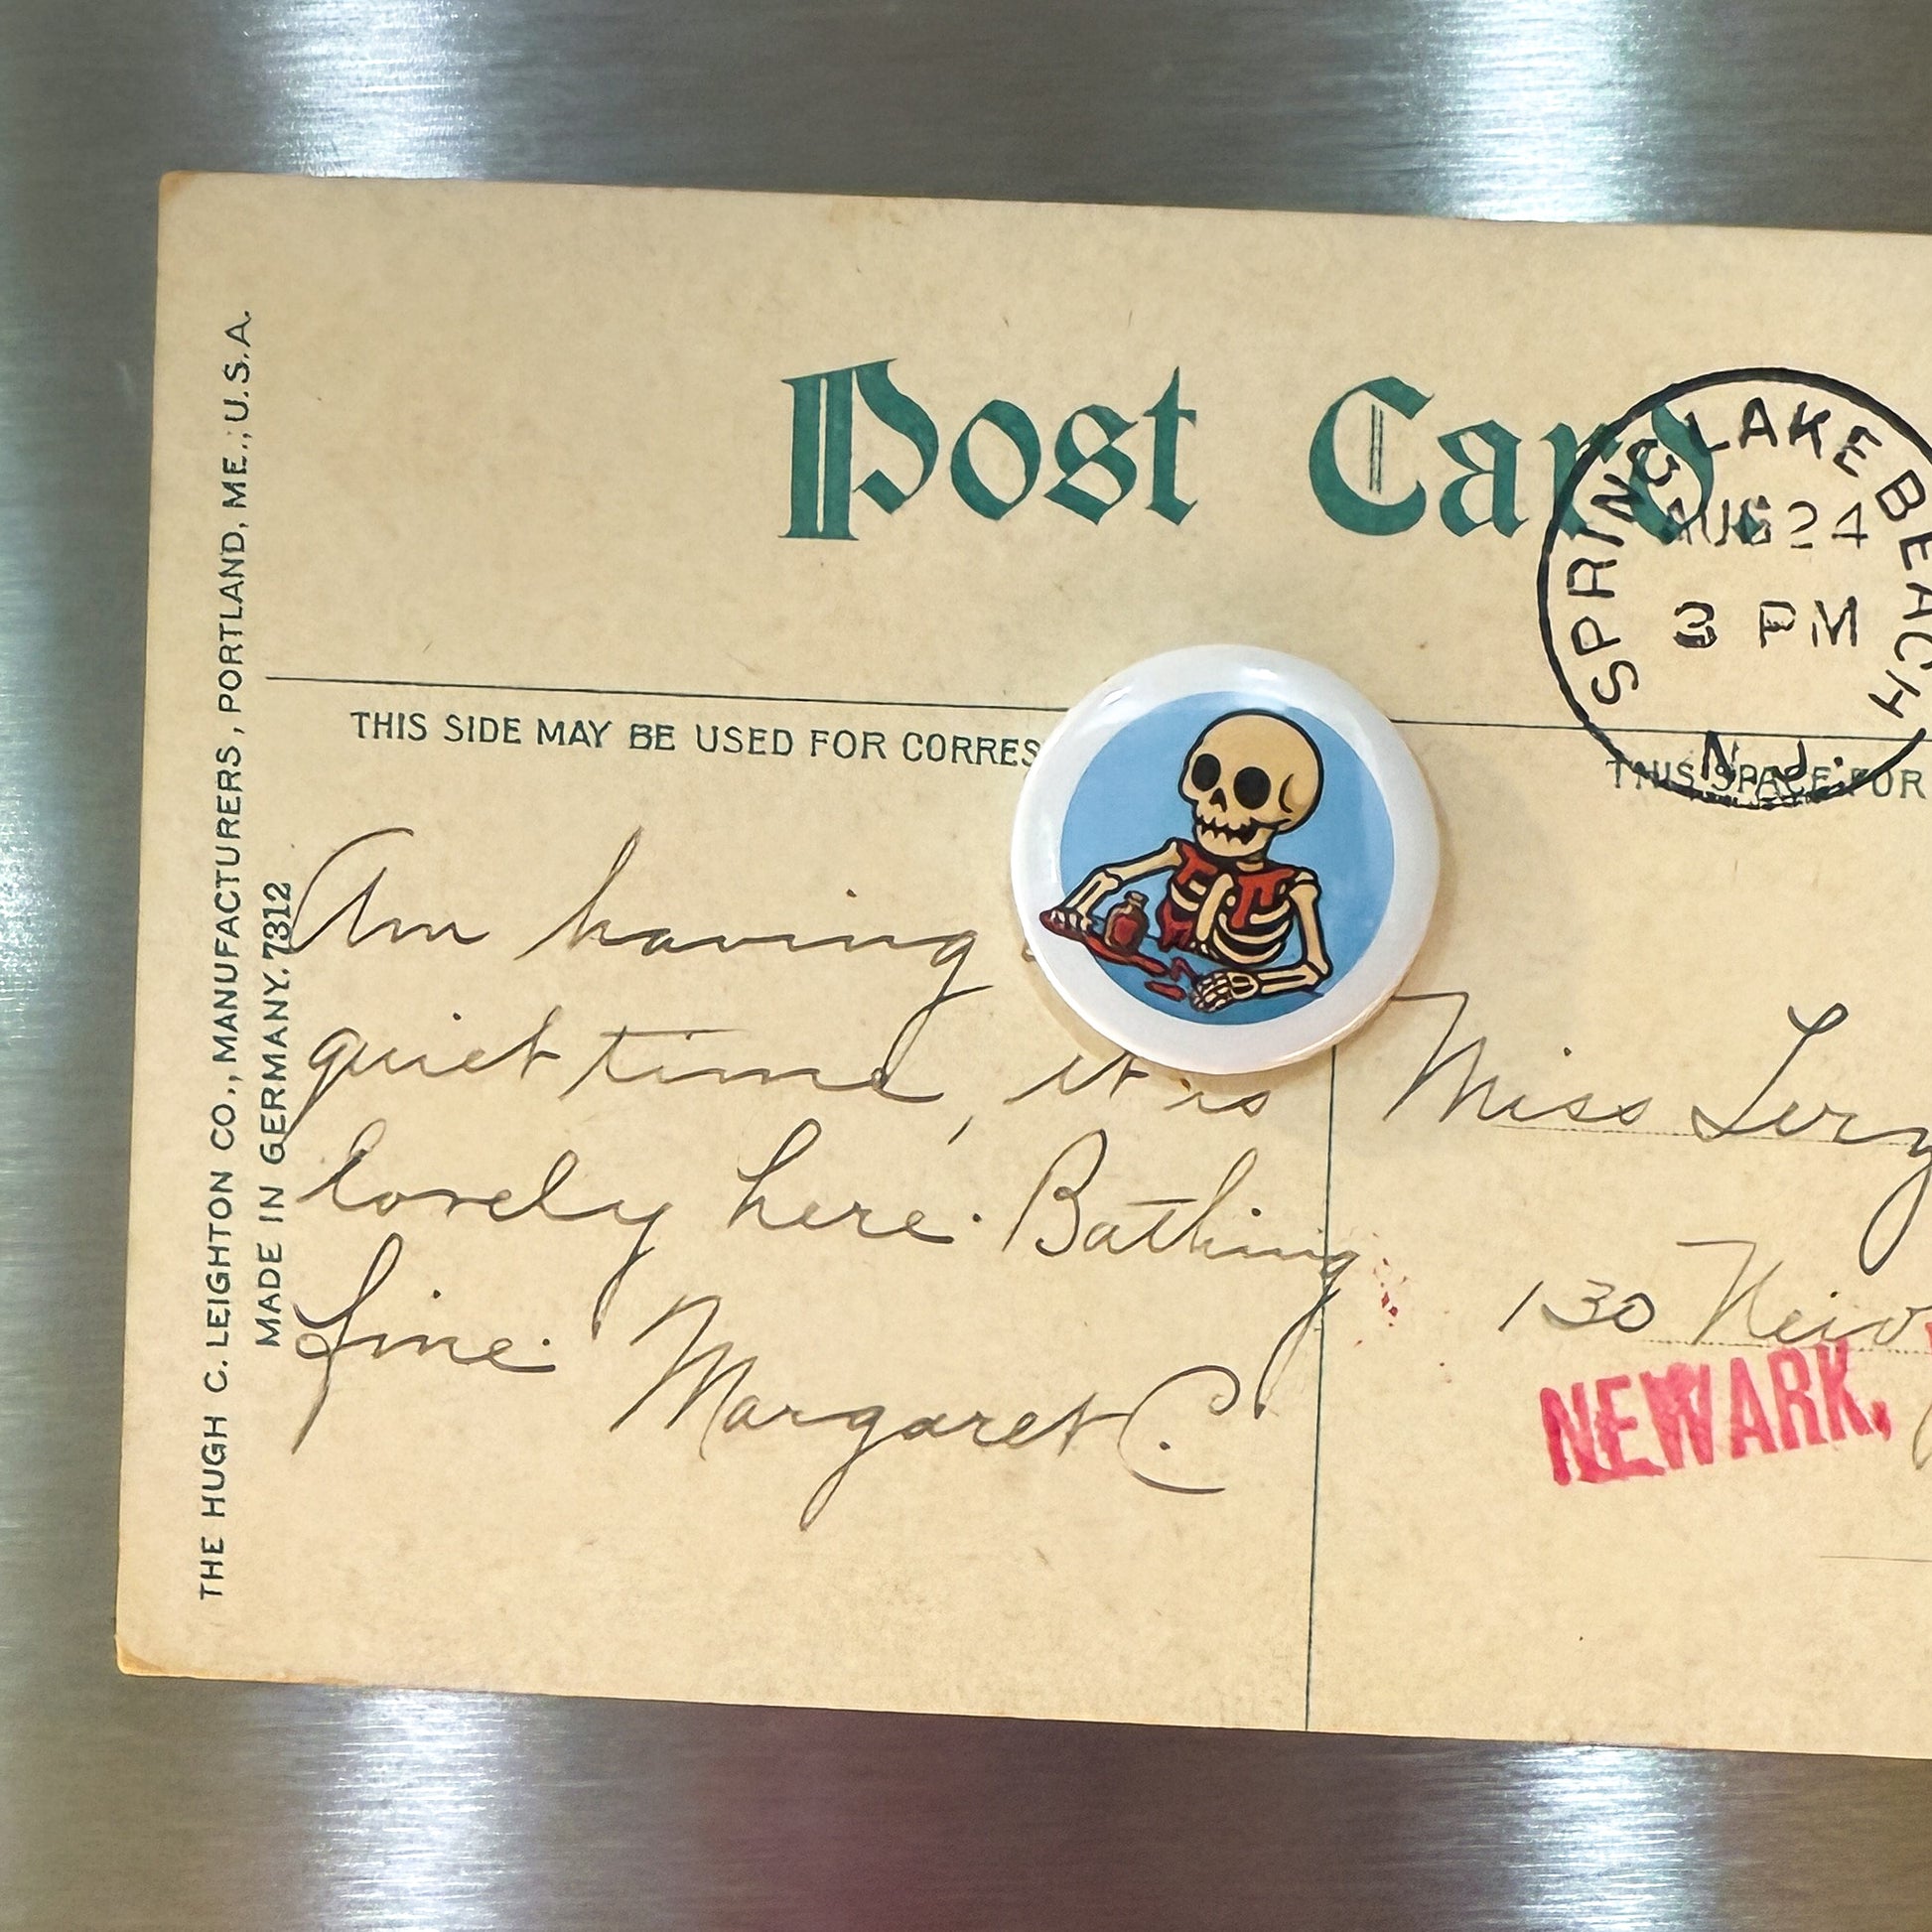 THE HUGH C. LEIGHTON CO., MANUFACTURERS, PORTLAND, ME., U.S.A.
MADE IN GERMANY. 7312
Post Card.
SPRING LAKE BEACH
AUG 24
3 PM
N.J.
THIS SIDE MAY BE USED FOR CORRES
THIS SPACE FOR
Am having
quiet time, it is
lovely here. Bathing
fine. Margaret C.
Miss
130 New
NEWARK,